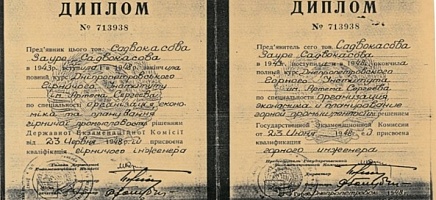 ДИПЛОМ
№ 713938
Пред'явник цього тов. Садвокасова
Зауре Садвокасова
в 1943р. вступила і в 1948р. закінчила
повний курс Дніпропетровського
Гірничого Інституту
ім. Артема Сергеєва
по спеціальності організація еконо-
міка та планування
гірничої промисловості рішенням
Державної Екзаменаційної Комісії
від 23 червня 1948р. їй присвоєна
кваліфікація гірничого інженера
ДИПЛОМ
№ 713938
Предъявитель сего тов. Садвокасова
Зауре Садвокасова
в 1943г. поступила и в 1948г. окончила
полный курс Днепропетровского
Горного Института
им. Артема Сергеева
по специальности организация
экономика и планирование
горной промышленности решением
Государственной Экзаменационной Комиссии
от 23 июня 1948г. ей присвоена
квалификация
горного инженера